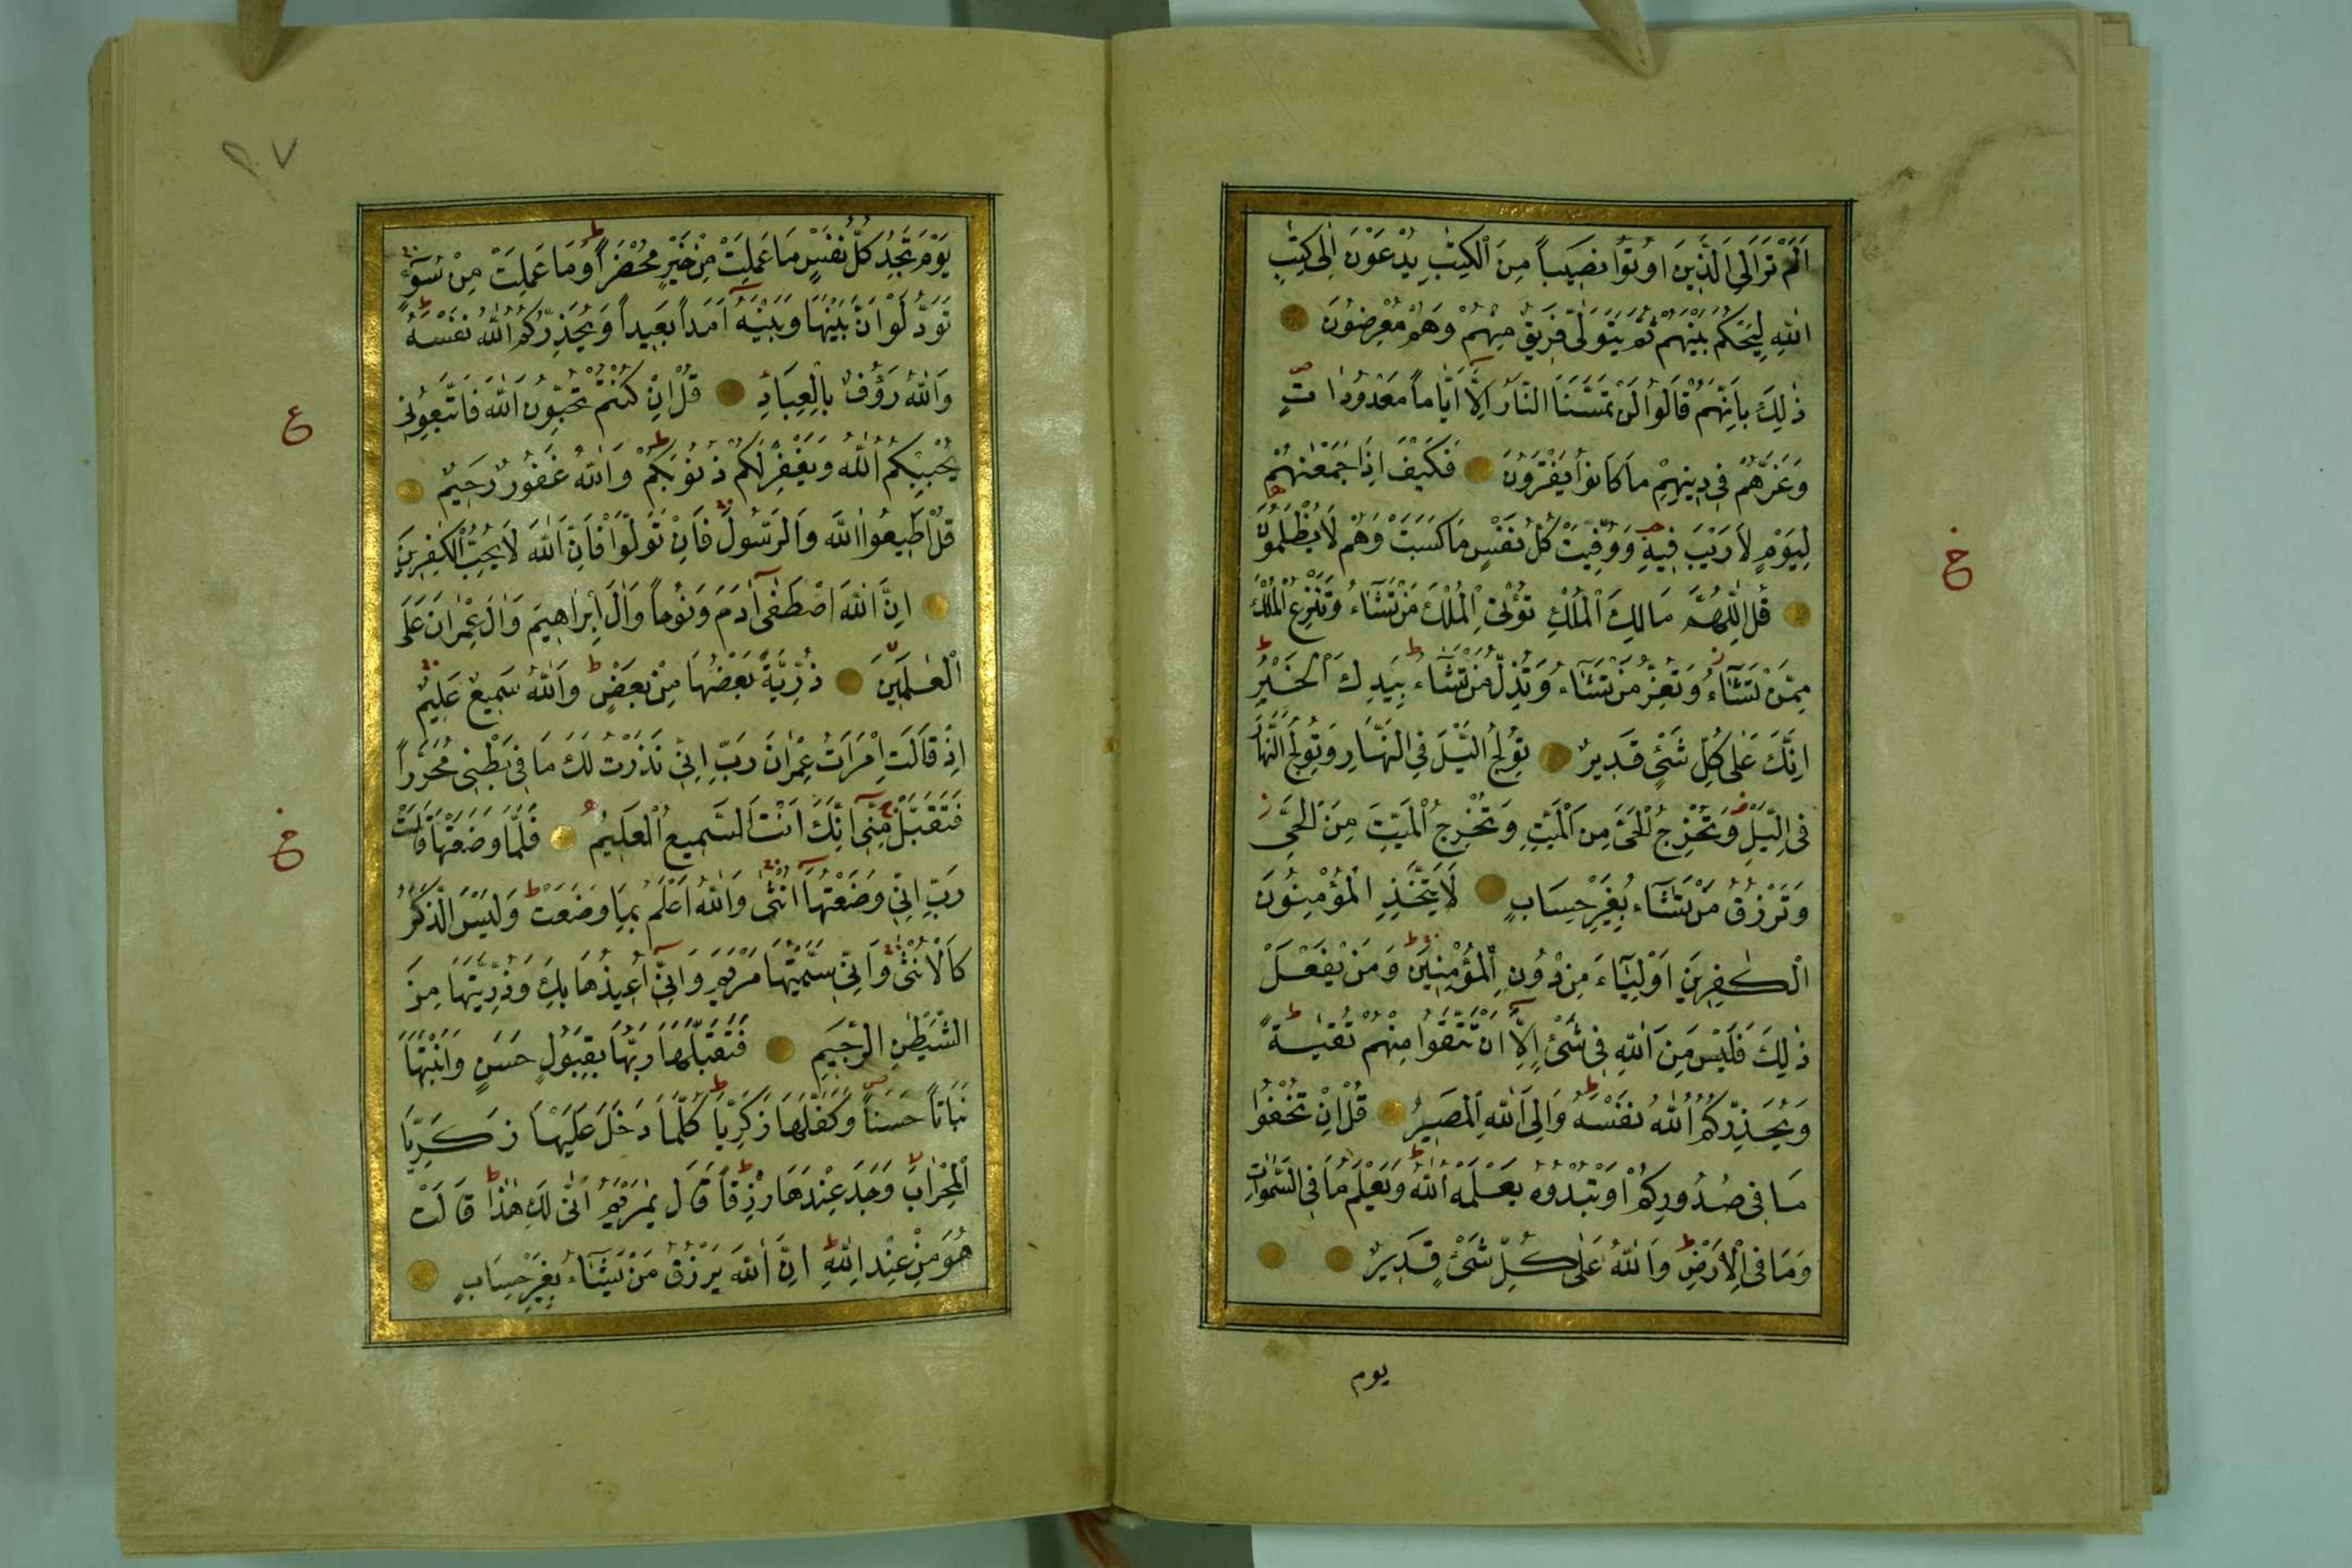 اَلَمْ تَرَ اِلَى الَّذِينَ اُوتُوا نَصِيباً مِنَ الْكِتٰبِ يُدْعَوْنَ اِلٰى كِتٰبِ
اللّٰهِ لِيَحْكُمَ بَيْنَهُمْ ثُمَّ يَتَوَلّٰى فَرِيقٌ مِنْهُمْ وَهُمْ مُعْرِضُونَ
ذٰلِكَ بِاَنَّهُمْ قَالُوا لَنْ تَمَسَّنَا النَّارُ اِلَّٓا اَيَّاماً مَعْدُودَاتٍ
وَغَرَّهُمْ فِى دِينِهِمْ مَا كَانُوا يَفْتَرُونَ فَكَيْفَ اِذَا جَمَعْنٰهُمْ
لِيَوْمٍ لَا رَيْبَ فِيهِ وَوُفِّيَتْ كُلُّ نَفْسٍ مَا كَسَبَتْ وَهُمْ لَا يُظْلَمُونَ
قُلِ اللّٰهُمَّ مَالِكَ الْمُلْكِ تُؤْتِى الْمُلْكَ مَنْ تَشَٓاءُ وَتَنْزِعُ الْمُلْكَ
مِمَّنْ تَشَٓاءُ وَتُعِزُّ مَنْ تَشَٓاءُ وَتُذِلُّ مَنْ تَشَٓاءُ بِيَدِكَ الْخَيْرُ
اِنَّكَ عَلٰى كُلِّ شَىْءٍ قَدِيرٌ تُولِجُ الَّيْلَ فِى النَّهَارِ وَتُولِجُ النَّهَارَ
فِى الَّيْلِ وَتُخْرِجُ الْحَىَّ مِنَ الْمَيِّتِ وَتُخْرِجُ الْمَيِّتَ مِنَ الْحَىِّ
وَتَرْزُقُ مَنْ تَشَٓاءُ بِغَيْرِ حِسَابٍ لَا يَتَّخِذِ الْمُؤْمِنُونَ
الْكٰفِرِينَ اَوْلِيَٓاءَ مِنْ دُونِ الْمُؤْمِنِينَ وَمَنْ يَفْعَلْ
ذٰلِكَ فَلَيْسَ مِنَ اللّٰهِ فِى شَىْءٍ اِلَّٓا اَنْ تَتَّقُوا مِنْهُمْ تُقٰيةً
وَيُحَذِّرُكُمُ اللّٰهُ نَفْسَهُ وَاِلَى اللّٰهِ الْمَصِيرُ قُلْ اِنْ تُخْفُوا
مَا فِى صُدُورِكُمْ اَوْ تُبْدُوهُ يَعْلَمْهُ اللّٰهُ وَيَعْلَمُ مَا فِى السَّمٰوَاتِ
وَمَا فِى الْاَرْضِ وَاللّٰهُ عَلٰى كُلِّ شَىْءٍ قَدِيرٌ
يوم
خ
يَوْمَ تَجِدُ كُلُّ نَفْسٍ مَا عَمِلَتْ مِنْ خَيْرٍ مُحْضَراً وَمَا عَمِلَتْ مِنْ سُٓوءٍ
تَوَدُّ لَوْ اَنَّ بَيْنَهَا وَبَيْنَهُٓ اَمَداً بَعِيداً وَيُحَذِّرُكُمُ اللّٰهُ نَفْسَهُ
وَاللّٰهُ رَؤُفٌ بِالْعِبَادِ قُلْ اِنْ كُنْتُمْ تُحِبُّونَ اللّٰهَ فَاتَّبِعُونِى
يُحْبِبْكُمُ اللّٰهُ وَيَغْفِرْ لَكُمْ ذُنُوبَكُمْ وَاللّٰهُ غَفُورٌ رَحِيمٌ
قُلْ اَطِيعُوا اللّٰهَ وَالرَّسُولَ فَاِنْ تَوَلَّوْا فَاِنَّ اللّٰهَ لَا يُحِبُّ الْكٰفِرِينَ
اِنَّ اللّٰهَ اصْطَفٰٓى اٰدَمَ وَنُوحاً وَاٰلَ اِبْرَاهِيمَ وَاٰلَ عِمْرَانَ عَلَى
الْعٰلَمِينَ ذُرِّيَّةً بَعْضُهَا مِنْ بَعْضٍ وَاللّٰهُ سَمِيعٌ عَلِيمٌ
اِذْ قَالَتِ امْرَاَتُ عِمْرٰنَ رَبِّ اِنِّى نَذَرْتُ لَكَ مَا فِى بَطْنِى مُحَرَّراً
فَتَقَبَّلْ مِنِّىٓ اِنَّكَ اَنْتَ السَّمِيعُ الْعَلِيمُ فَلَمَّا وَضَعَتْهَا قَالَتْ
رَبِّ اِنِّى وَضَعْتُهَٓا اُنْثٰى وَاللّٰهُ اَعْلَمُ بِمَا وَضَعَتْ وَلَيْسَ الذَّكَرُ
كَالْاُنْثٰى وَاِنِّى سَمَّيْتُهَا مَرْيَمَ وَاِنِّىٓ اُعِيذُهَا بِكَ وَذُرِّيَّتَهَا مِنَ
الشَّيْطٰنِ الرَّجِيمِ فَتَقَبَّلَهَا رَبُّهَا بِقَبُولٍ حَسَنٍ وَاَنْبَتَهَا
نَبَاتاً حَسَناً وَكَفَّلَهَا زَكَرِيَّا كُلَّمَا دَخَلَ عَلَيْهَا زَكَرِيَّا
الْمِحْرَابَ وَجَدَ عِنْدَهَا رِزْقاً قَالَ يٰمَرْيَمُ اَنّٰى لَكِ هٰذَا قَالَتْ
هُوَ مِنْ عِنْدِ اللّٰهِ اِنَّ اللّٰهَ يَرْزُقُ مَنْ يَشَٓاءُ بِغَيْرِ حِسَابٍ
ع
خ